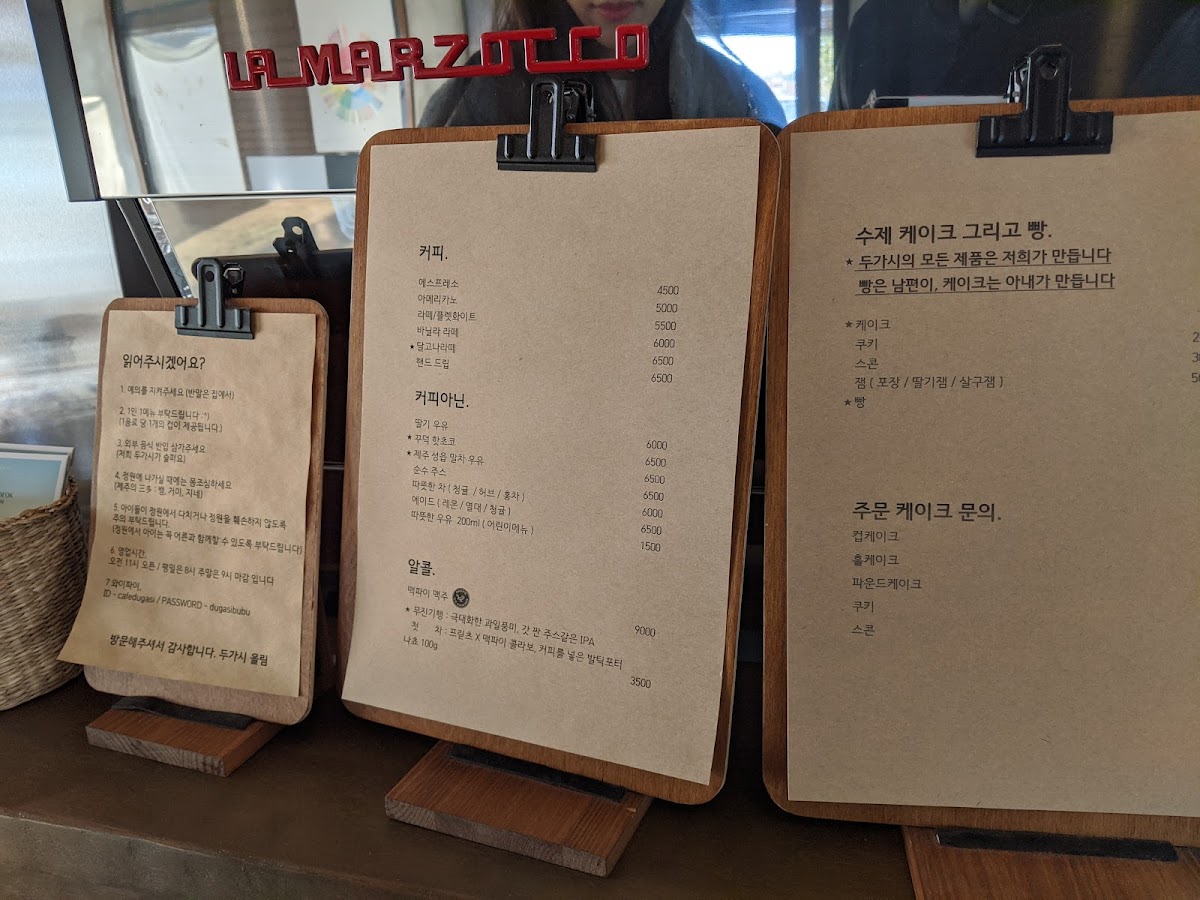 LA MARZOCCO
읽어주시겠어요?
1. 예의를 지켜주세요 (반말은 집에서)
2. 1인 1메뉴 부탁드립니다 :^)
(1음료 당 1개의 컵이 제공됩니다.)
3. 외부 음식 반입 삼가주세요
(저희 두가시가 슬퍼요)
4. 정원에 나가실 때에는 몸조심하세요
(제주의 三多 : 뱀, 거미, 지네)
5. 아이들이 정원에서 다치거나 정원을 훼손하지 않도록
주의 부탁드립니다.
(정원에서 아이는 꼭 어른과 함께할 수 있도록 부탁드립니다)
6. 영업시간.
오전 11시 오픈 / 평일은 8시 주말은 9시 마감 입니다
7.와이파이.
ID - cafedugasi / PASSWORD - dugasibubu
방문해주셔서 감사합니다. 두가시 올림
커피.
에스프레소 4500
아메리카노 5000
라떼/플렛화이트 5500
바닐라 라떼 6000
★ 달고나라떼 6500
핸드 드립 6500
커피아닌.
딸기 우유 6000
★ 꾸덕 핫초코 6500
★ 제주 성읍 말차 우유 6500
순수 주스 6500
따뜻한 차 ( 청귤 / 허브 / 홍차 ) 6000
에이드 ( 레몬 / 열대 / 청귤 ) 6500
따뜻한 우유 200ml ( 어린이메뉴 ) 1500
알콜.
맥파이 맥주
★ 무진기행 : 극대화한 과일풍미, 갓 짠 주스같은 IPA 9000
첫 차 : 프릳츠 X 맥파이 콜라보, 커피를 넣은 발틱포터
나쵸 100g 3500
수제 케이크 그리고 빵.
★ 두가시의 모든 제품은 저희가 만듭니다
빵은 남편이, 케이크는 아내가 만듭니다
★ 케이크
쿠키
스콘
잼 ( 포장 / 딸기잼 / 살구잼 )
★ 빵
주문 케이크 문의.
컵케이크
홀케이크
파운드케이크
쿠키
스콘